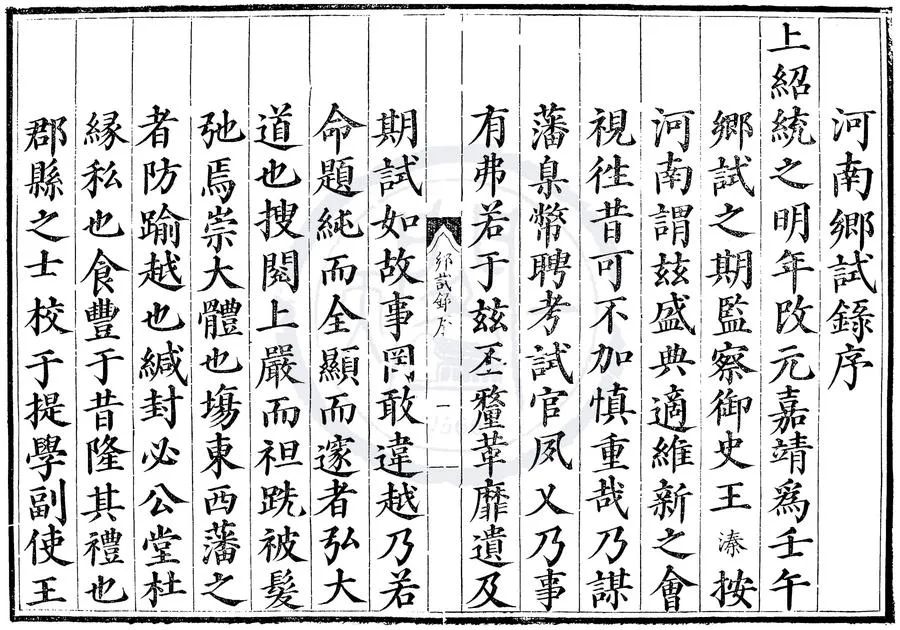 河南鄉試錄序
上紹統之明年改元嘉靖爲壬午
鄉試之期監察御史王溱按
河南謂兹盛典適維新之會
視徃昔可不加慎重哉乃謀
藩臬幣聘考試官夙乂乃事
有弗若于兹丕釐革靡遺及
鄉試錄序
一
期試如故事罔敢違越乃若
命題純而全顯而邃者弘大
道也搜閱上嚴而袒跣被髮
弛焉崇大體也塲東西藩之
者防踰越也緘封必公堂杜
緣私也食豐于昔隆其禮也
郡縣之士校于提學副使王